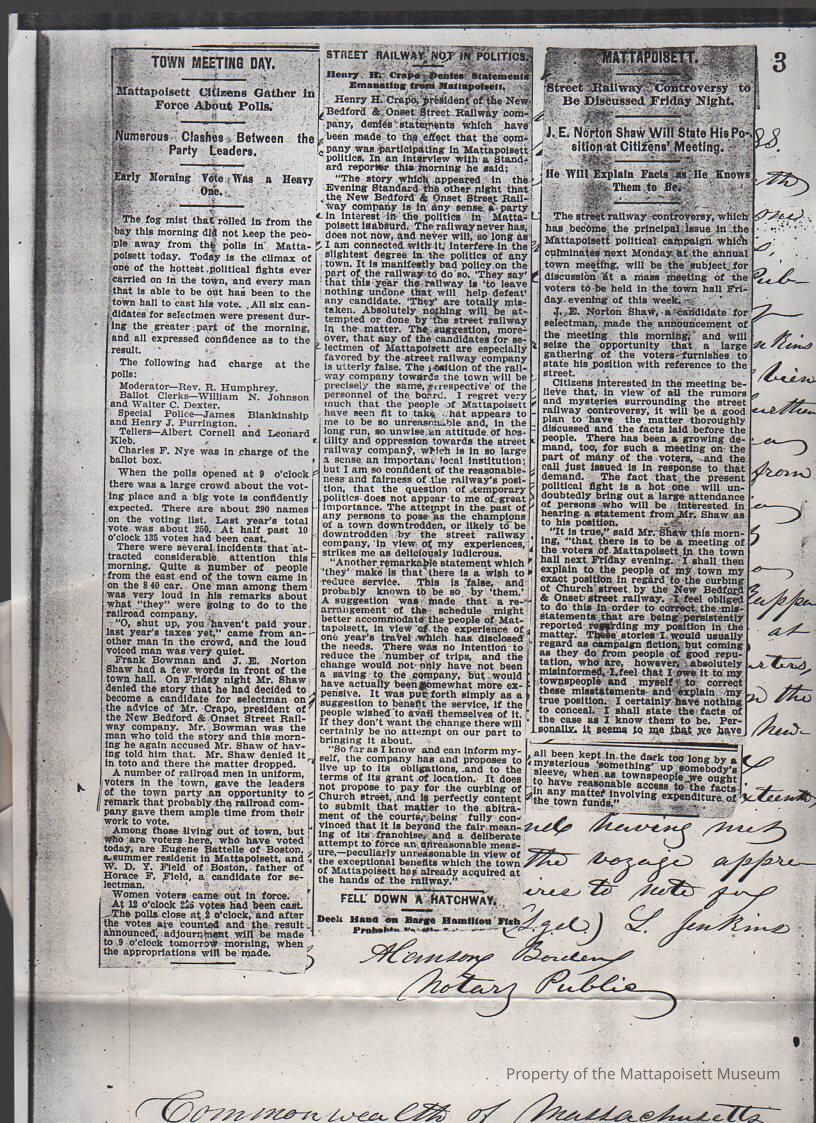 3
TOWN MEETING DAY.
Mattapoisett Citizens Gather in
Force About Polls.
Numerous Clashes Between the
Party Leaders.
Early Morning Vote Was a Heavy
One.
The fog mist that rolled in from the
bay this morning did not keep the peo-
ple away from the polls in Matta-
poisett today. Today is the climax of
one of the hottest political fights ever
carried on in the town, and every man
that is able to be out has been to the
town hall to cast his vote. All six can-
didates for selectmen were present dur-
ing the greater part of the morning,
and all expressed confidence as to the
result.
The following had charge at the
polls:
Moderator—Rev. R. Humphrey.
Ballot Clerks—William N. Johnson
and Walter C. Dexter.
Special Police—James Blankinship
and Henry J. Purrington.
Tellers—Albert Cornell and Leonard
Kleb.
Charles F. Nye was in charge of the
ballot box.
When the polls opened at 9 o'clock
there was a large crowd about the vot-
ing place and a big vote is confidently
expected. There are about 290 names
on the voting list. Last year's total
vote was about 250. At half past 10
o'clock 135 votes had been cast.
There were several incidents that at-
tracted considerable attention this
morning. Quite a number of people
from the east end of the town came in
on the 8 40 car. One man among them
was very loud in his remarks about
what "they" were going to do to the
railroad company.
"O, shut up, you haven't paid your
last year's taxes yet," came from an-
other man in the crowd, and the loud
voiced man was very quiet.
Frank Bowman and J. E. Norton
Shaw had a few words in front of the
town hall. On Friday night Mr. Shaw
denied the story that he had decided to
become a candidate for selectman on
the advice of Mr. Crapo, president of
the New Bedford & Onset Street Rail-
way company. Mr. Bowman was the
man who told the story and this morn-
ing he again accused Mr. Shaw of hav-
ing told him that. Mr. Shaw denied it
in toto and there the matter dropped.
A number of railroad men in uniform,
voters in the town, gave the leaders
of the town party an opportunity to
remark that probably the railroad com-
pany gave them ample time from their
work to vote.
Among those living out of town, but
who are voters here, who have voted
today, are Eugene Battelle of Boston,
a summer resident in Mattapoisett, and
W. D. Y. Field of Boston, father of
Horace F. Field, a candidate for se-
lectman.
Women voters came out in force.
At 12 o'clock 225 votes had been cast.
The polls close at 2 o'clock, and after
the votes are counted and the result
announced, adjournment will be made
to 9 o'clock tomorrow morning, when
the appropriations will be made.
STREET RAILWAY NOT IN POLITICS.
Henry H. Crapo Denies Statements
Emanating from Mattapoisett.
Henry H. Crapo, president of the New
Bedford & Onset Street Railway com-
pany, denies statements which have
been made to the effect that the com-
pany was participating in Mattapoisett
politics. In an interview with a Stand-
ard reporter this morning he said:
"The story which appeared in the
Evening Standard the other night that
the New Bedford & Onset Street Rail-
way company is in any sense a party
in interest in the politics in Matta-
poisett is absurd. The railway never has,
does not now, and never will, so long as
I am connected with it, interfere in the
slightest degree in the politics of any
town. It is manifestly bad policy on the
part of the railway to do so. 'They' say
that this year the railway is 'to leave
nothing undone that will help defeat'
any candidate. 'They' are totally mis-
taken. Absolutely nothing will be at-
tempted or done by the street railway
in the matter. The suggestion, more-
over, that any of the candidates for se-
lectmen of Mattapoisett are especially
favored by the street railway company
is utterly false. The position of the rail-
way company towards the town will be
precisely the same, irrespective of the
personnel of the board. I regret very
much that the people of Mattapoisett
have seen fit to take what appears to
me to be so unreasonable and, in the
long run, so unwise an attitude of hos-
tility and oppression towards the street
railway company, which is in so large
a sense an important local institution;
but I am so confident of the reasonable-
ness and fairness of the railway's posi-
tion, that the question of temporary
politics does not appear to me of great
importance. The attempt in the past of
any persons to pose as the champions
of a town downtrodden, or likely to be
downtrodden by the street railway
company, in view of my experiences,
strikes me as deliciously ludicrous.
"Another remarkable statement which
'they' make is that there is a wish to
reduce service. This is false, and
probably known to be so by 'them.'
A suggestion was made that a re-
arrangement of the schedule might
better accommodate the people of Mat-
tapoisett, in view of the experience of
one year's travel which has disclosed
the needs. There was no intention to
reduce the number of trips, and the
change would not only have not been
a saving to the company, but would
have actually been somewhat more ex-
pensive. It was put forth simply as a
suggestion to benefit the service, if the
people wished to avail themselves of it.
If they don't want the change there will
certainly be no attempt on our part to
bringing it about.
"So far as I know and can inform my-
self, the company has and proposes to
live up to its obligations, and to the
terms of its grant of location. It does
not propose to pay for the curbing of
Church street, and is perfectly content
to submit that matter to the abitra-
ment of the courts, being fully con-
vinced that it is beyond the fair mean-
ing of its franchise, and a deliberate
attempt to force an unreasonable meas-
ure,—peculiarly unreasonable in view of
the exceptional benefits which the town
of Mattapoisett has already acquired at
the hands of the railway."
FELL DOWN A HATCHWAY.
Deck Hand on Barge Hamilton Fish
MATTAPOISETT.
Street Railway Controversy to
Be Discussed Friday Night.
J. E. Norton Shaw Will State His Po-
sition at Citizens' Meeting.
He Will Explain Facts as He Knows
Them to Be.
The street railway controversy, which
has become the principal issue in the
Mattapoisett political campaign which
culminates next Monday at the annual
town meeting, will be the subject for
discussion at a mass meeting of the
voters to be held in the town hall Fri-
day evening of this week.
J. E. Norton Shaw, a candidate for
selectman, made the announcement of
the meeting this morning, and will
seize the opportunity that a large
gathering of the voters furnishes to
state his position with reference to the
street.
Citizens interested in the meeting be-
lieve that, in view of all the rumors
and mysteries surrounding the street
railway controversy, it will be a good
plan to have the matter thoroughly
discussed and the facts laid before the
people. There has been a growing de-
mand, too, for such a meeting on the
part of many of the voters, and the
call just issued is in response to that
demand. The fact that the present
political fight is a hot one will un-
doubtedly bring out a large attendance
of persons who will be interested in
hearing a statement from Mr. Shaw as
to his position.
"It is true," said Mr. Shaw this morn-
ing, "that there is to be a meeting of
the voters of Mattapoisett in the town
hall next Friday evening. I shall then
explain to the people of my town my
exact position in regard to the curbing
of Church street by the New Bedford
& Onset street railway. I feel obliged
to do this in order to correct the mis-
statements that are being persistently
reported regarding my position in the
matter. These stories I would usually
regard as campaign fiction, but coming
as they do from people of good repu-
tation, who are, however, absolutely
misinformed, I feel that I owe it to my
townspeople and myself to correct
these misstatements and explain my
true position. I certainly have nothing
to conceal. I shall state the facts of
the case as I know them to be. Per-
sonally, it seems to me that we have
all been kept in the dark too long by a
mysterious 'something' up somebody's
sleeve, when as townspeople we ought
to have reasonable access to the facts
in any matter involving expenditure of
the town funds."
having met
the voyage appre-
to note
(Sgd) L. Jenkins
Notary Public
Property of the Mattapoisett Museum
Commonwealth of Massachusetts